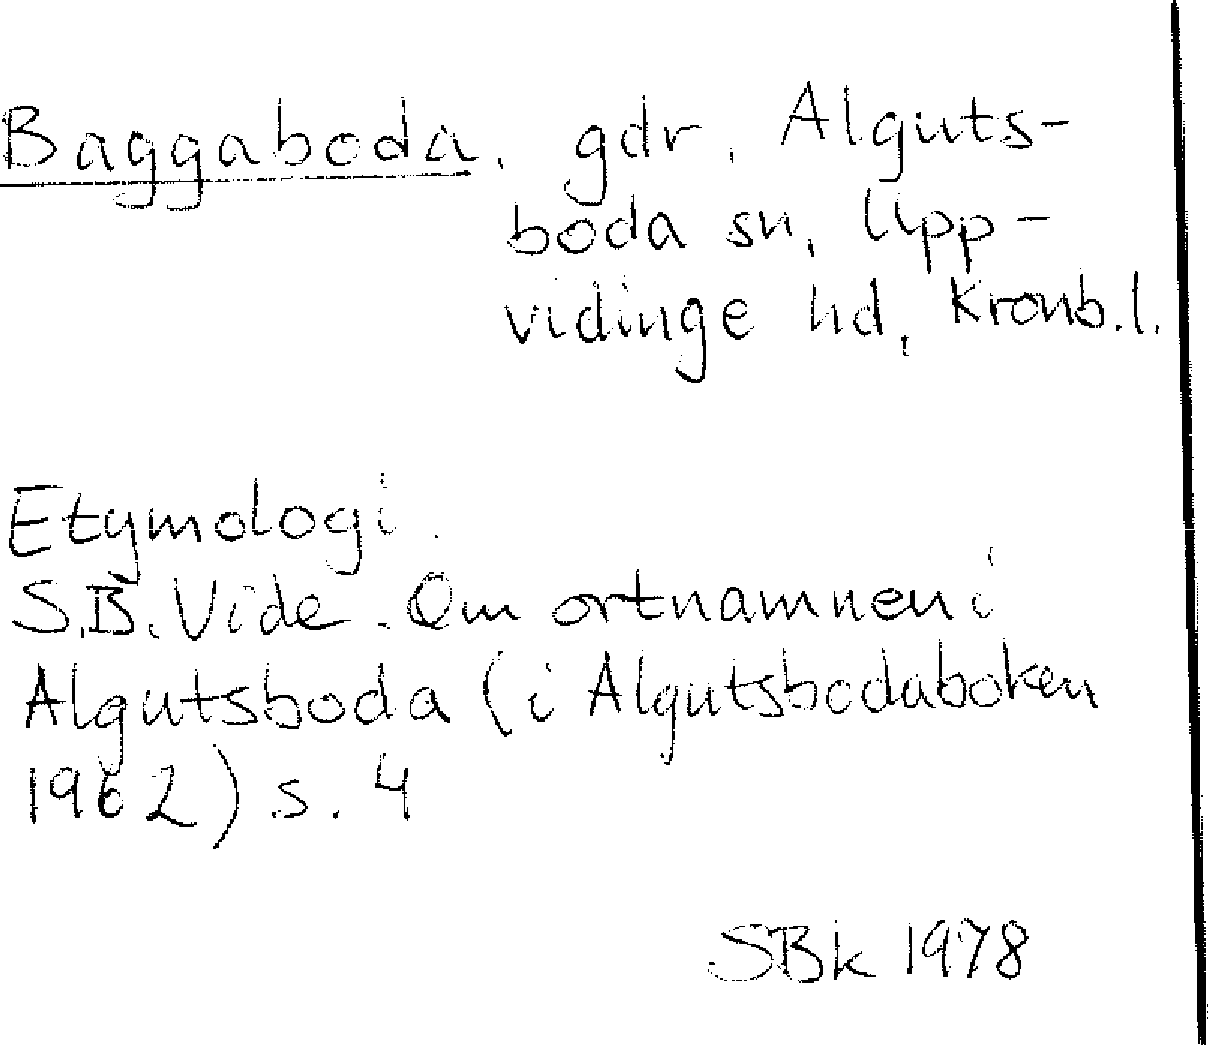 Baggaboda, gdr, Alguts-
boda sn, Upp-
vidinge hd, Kronb.l.
Etymologi.
S.B. Vide. Om ortnamnen i
Algutsboda (i Algutsbodaboken
1962) s. 4
SBk 1978